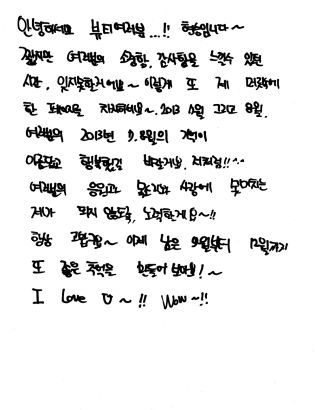 안녕하세요 뷰티여러분...!! 현승입니다~
짧지만 여러분의 소중함, 감사함을 느낄수 있던
시간, 잊지못할거에요~ 이렇게 또 제 머릿속에
한 페이지를 차지하네요~. 2013 8월.
여러분의 2013년 7.8월의 기억이
아름답고 행복했길 바랄게요. 저처럼!!^^
여러분의 응원과 믿음과 사랑에 못미치는
제가 되지 않도록, 노력할게요~!!
항상 고맙구요~ 이제 남은 9월부터 12월까지
또 좋은 추억을 만들어 보아요!~
I Love U~!! Wow~!!